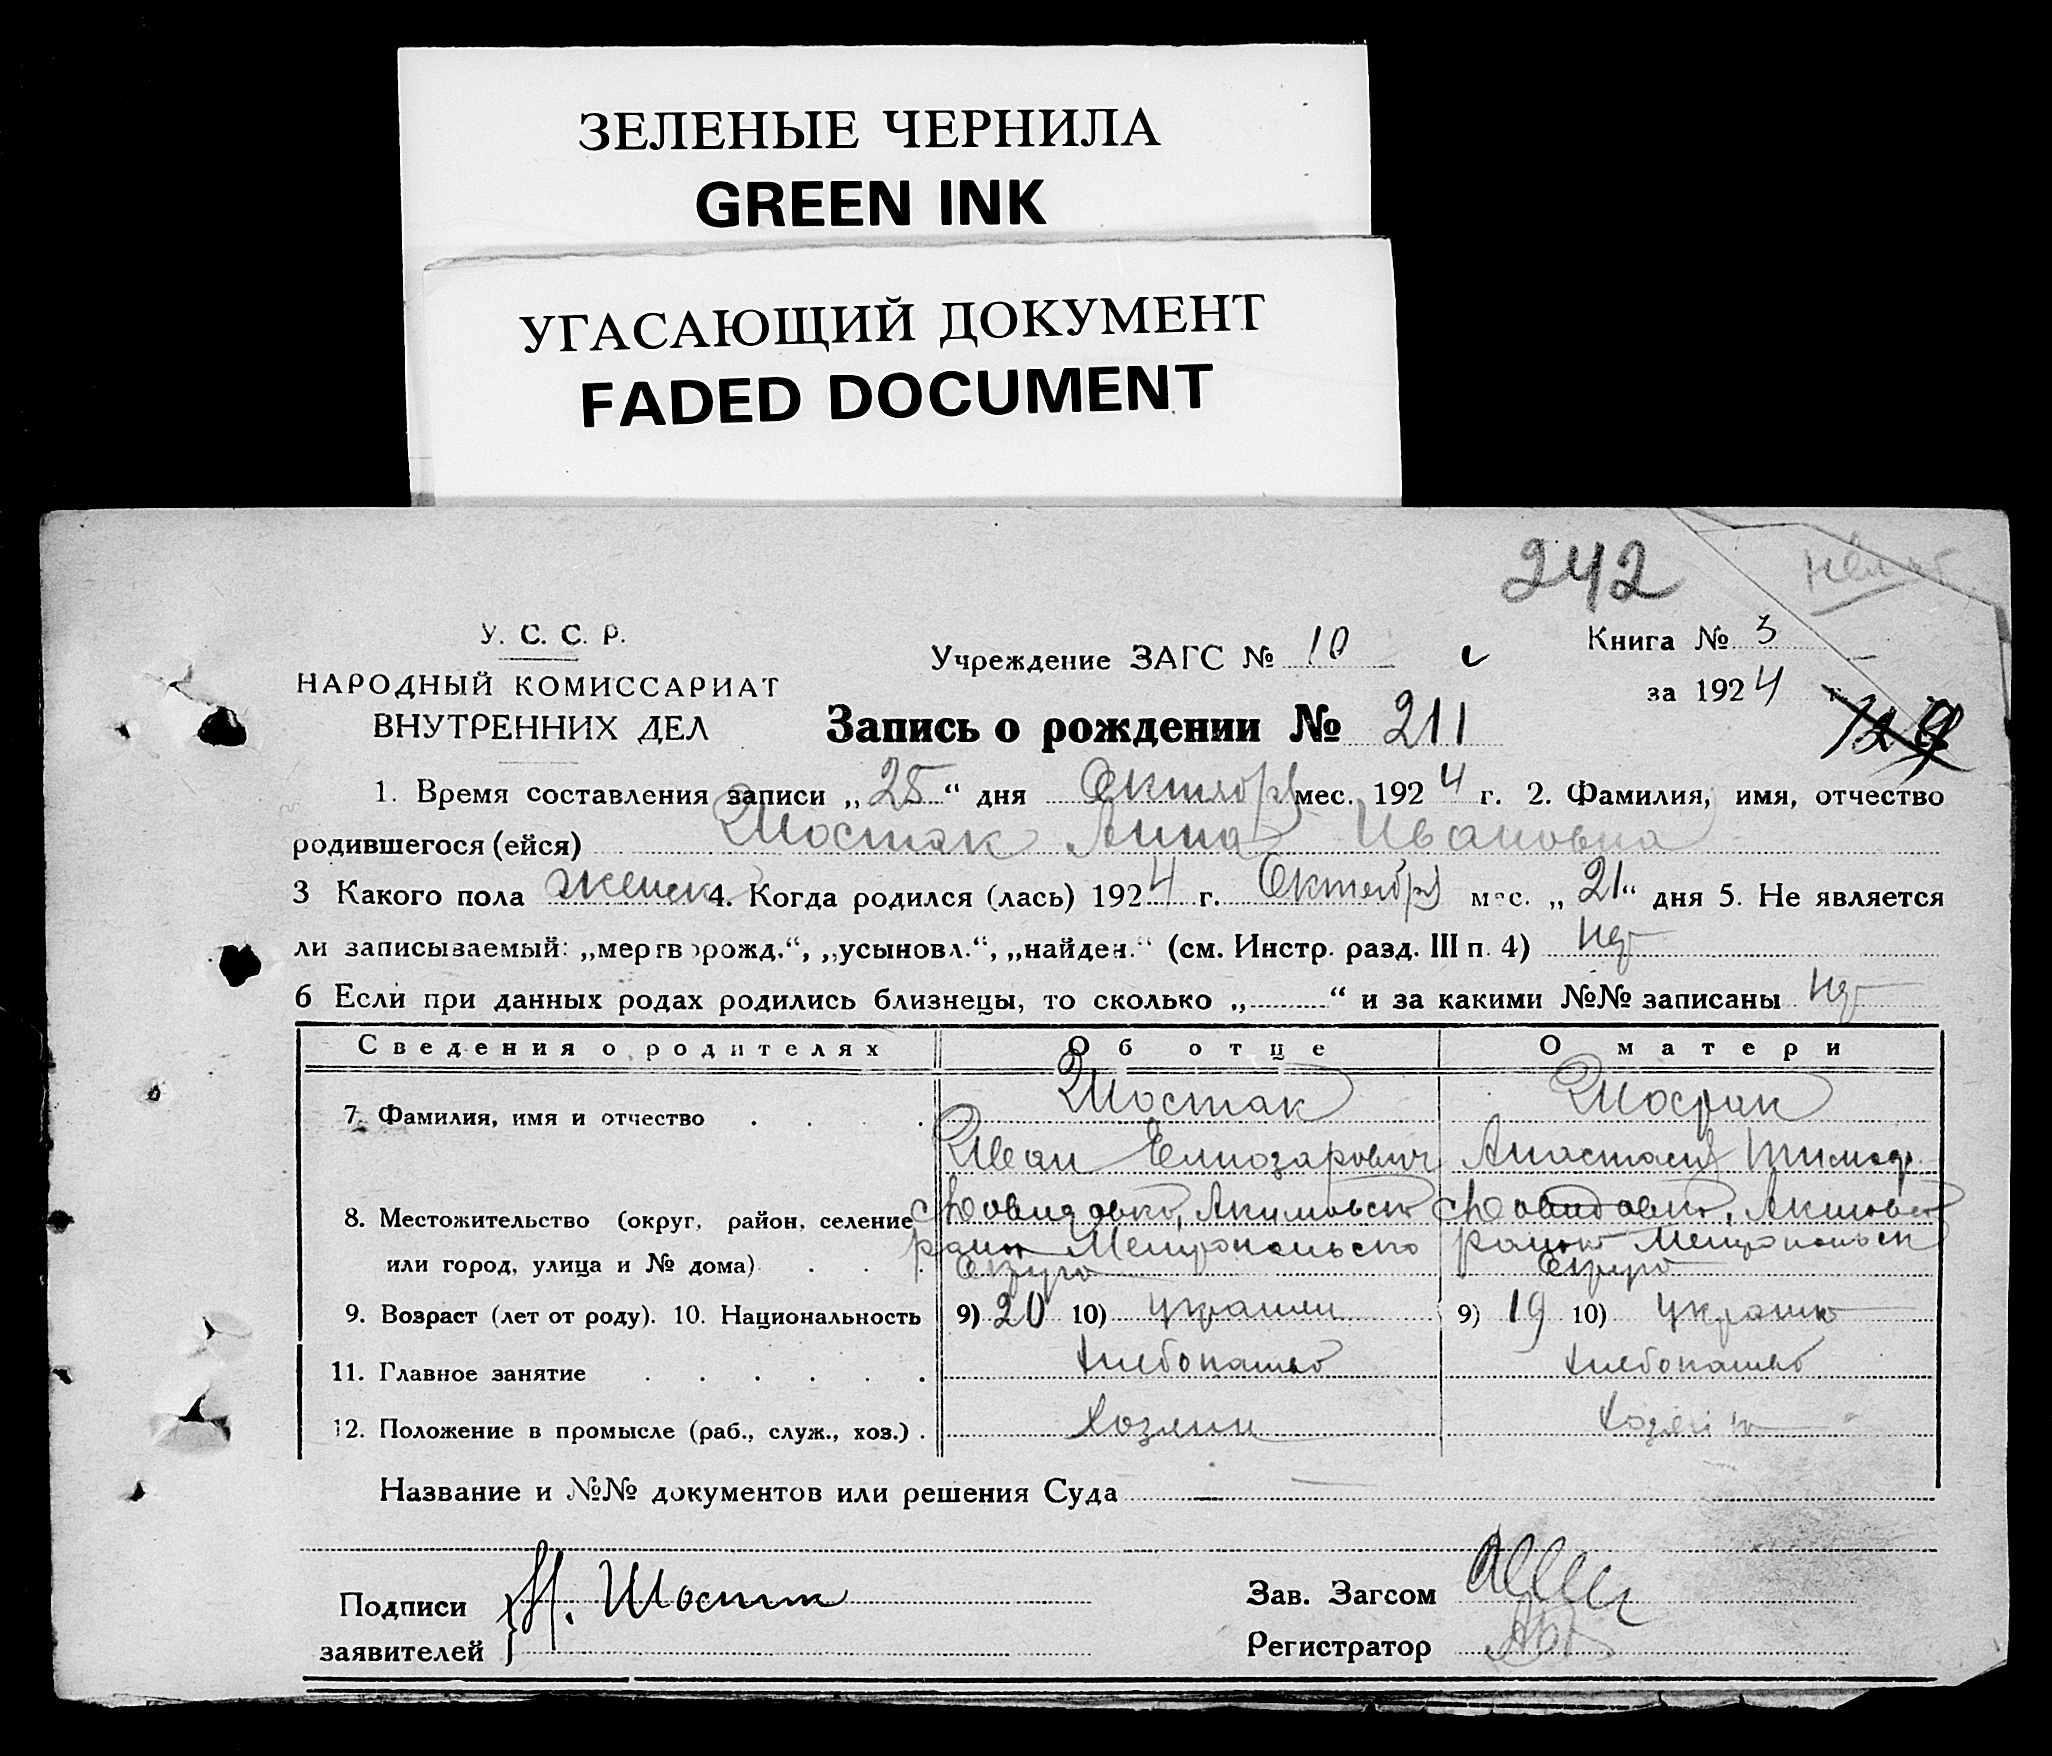 ЗЕЛЕНЫЕ ЧЕРНИЛА
GREEN INK
УГАСАЮЩИЙ ДОКУМЕНТ
FADED DOCUMENT
242
У. С. С. Р.
НАРОДНЫЙ КОМИССАРИАТ
ВНУТРЕННИХ ДЕЛ
Учреждение ЗАГС № 10
Книга № 3
за 1924 г.
Запись о рождении № 211
1. Время составления записи „25“ дня Октября мес. 1924 г. 2. Фамилия, имя, отчество
родившегося (ейся) Шостак Анна Ивановна
3 Какого пола женск 4. Когда родился (лась) 1924 г. Октября мес. „21“ дня 5. Не является
ли записываемый: „мертворожд.“, „усыновл.“, „найден.“ (см. Инстр. разд. III п. 4) нет
6 Если при данных родах родились близнецы, то сколько „ “ и за какими №№ записаны нет
Сведения о родителях Об отце О матери
7. Фамилия, имя и отчество Шостак
Иван Анастасия Тимоф.
8. Местожительство (округ, район, селение Акимовско
или город, улица и № дома) район Мелитопольско
Округа Округа
9. Возраст (лет от роду). 10. Национальность 9) 20 10) украин 9) 19 10) украин
11. Главное занятие хлебопашество хлебопашество
12. Положение в промысле (раб., служ., хоз.) хозяин
Название и №№ документов или решения Суда —
Подписи
заявителей
Шостак
Зав. Загсом
Регистратор